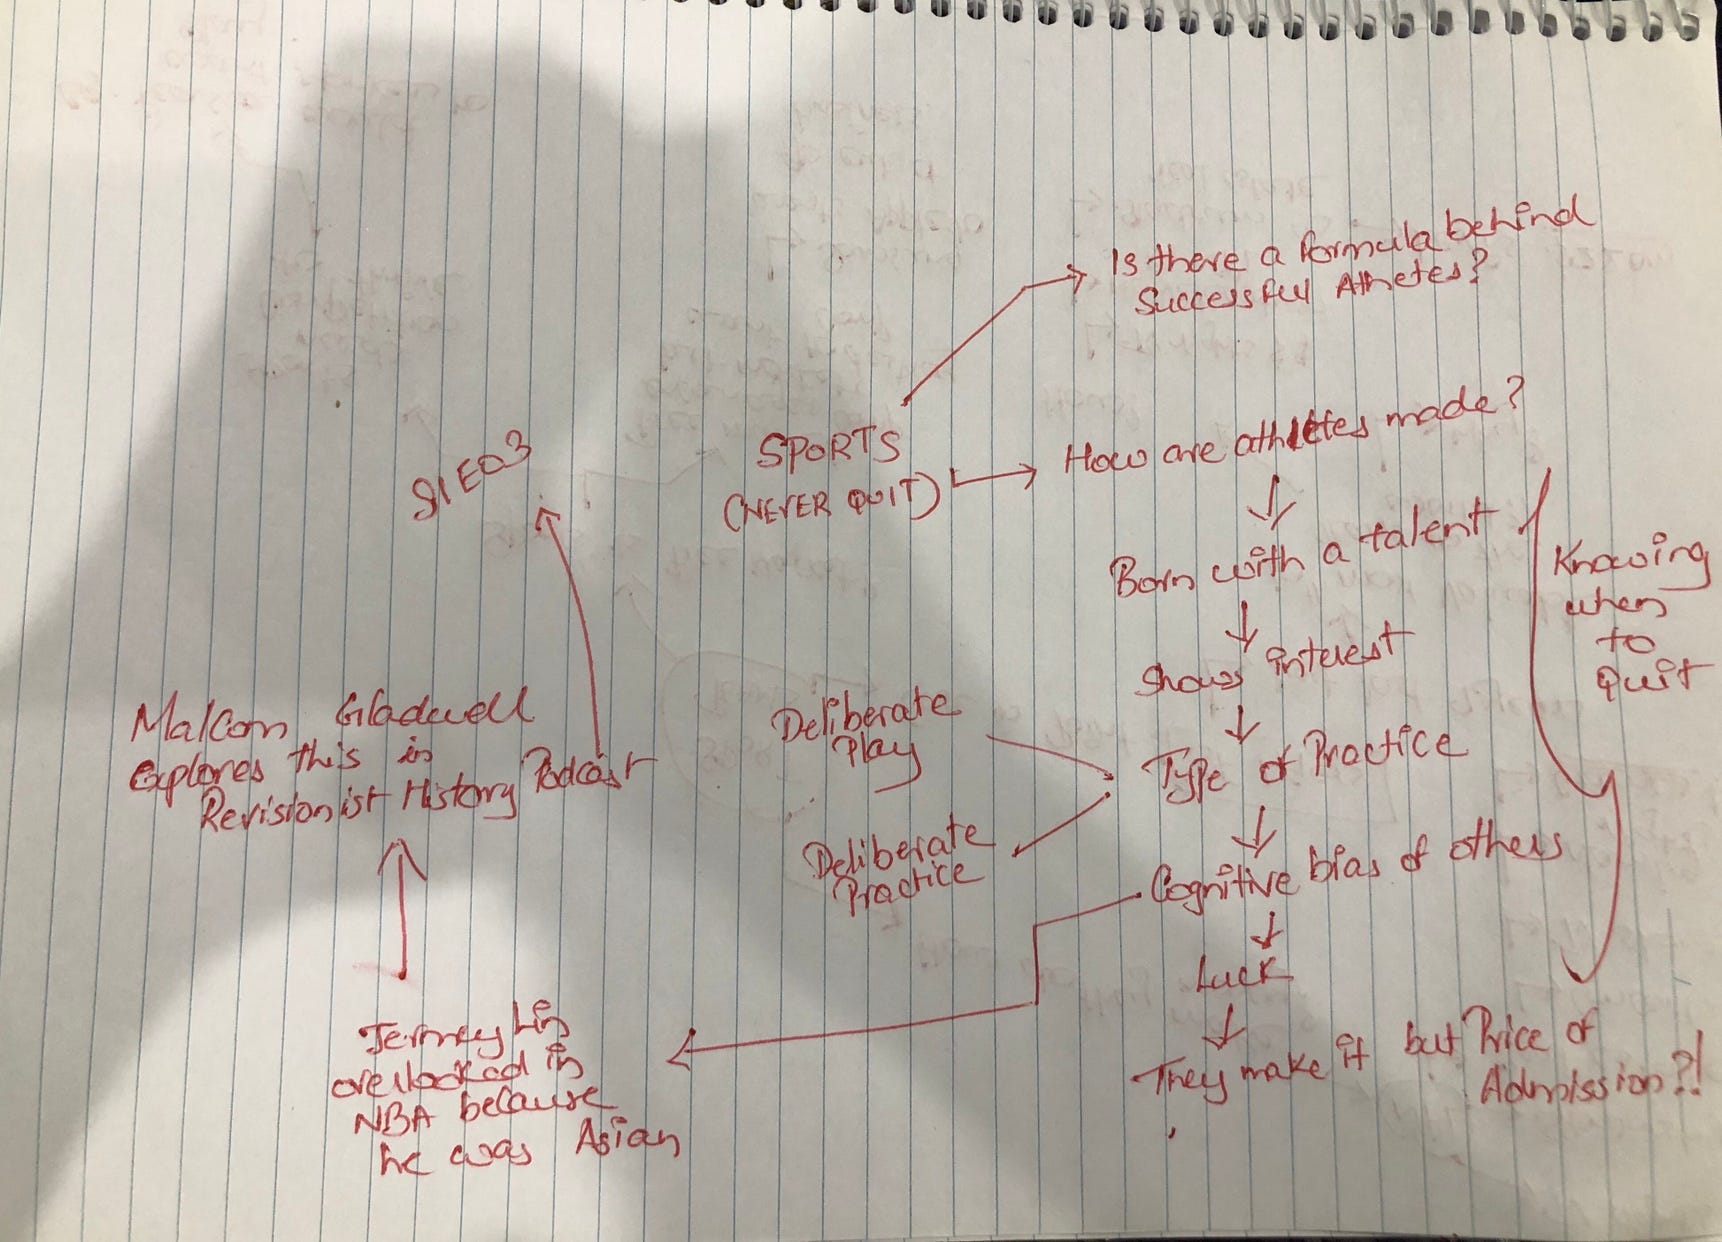 Is there a formula behind
Successful Athetes?
SPORTS
(NEVER QUIT)
How are athletes made?
Born with a talent
Shows interest
Type of Practice
Deliberate
Play
Deliberate
Practice
Cognitive bias of others
Luck
They make it but Price of
Admission?!
Knowing
when
to
Quit
S1E03
Malcom Gladwell
explores this in
Revisionist History Podcast
Jermey Lin
overlooked in
NBA because
he was Asian